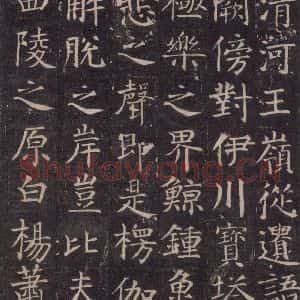 清河王嶺從遺語
闕傍對伊川寶塔
極樂之界鯨鍾魚
悲之聲即是楞伽
解脫之岸豈比夫
西陵之原白楊蕭
Shufawang.CN